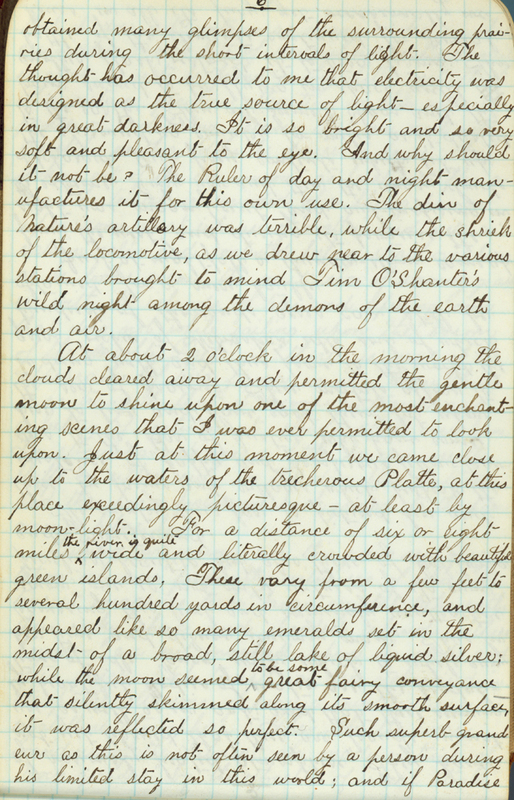 6
obtained many glimpses of the surrounding prai-
ries during the short intervals of light. The
thought has occurred to me that electricity was
designed as the true source of light – especially
in great darkness. It is so bright and so very
soft and pleasant to the eye. And why should
it not be? The Ruler of day and night man-
ufactures it for this own use. The din of
Nature's artillary was terrible, while the shriek
of the locomotive, as we drew near to the various
stations brought to mind Tim O'Shanter's
wild night among the demons of the earth
and air.
At about 2 o'clock in the morning the
clouds cleared away and permitted the gentle
moon to shine upon one of the most enchant-
ing scenes that I was ever permitted to look
upon. Just at this moment we came close
up to the waters of the trecherous Platte, at this
place exceedingly picturesque – at least by
moon-light. For a distance of six or eight
miles the river is quite wide and literally crowded with beautiful
green islands. These vary from a few feet to
several hundred yards in circumfrence, and
appeared like so many emeralds set in the
midst of a broad, still lake of liquid silver;
while the moon seemed to be some great fairy conveyance
that silently skimmed along its smooth surface,
it was reflected so perfect. Such superb grand
eur as this is not often seen by a person during
his limited stay in this world; and if Paradise